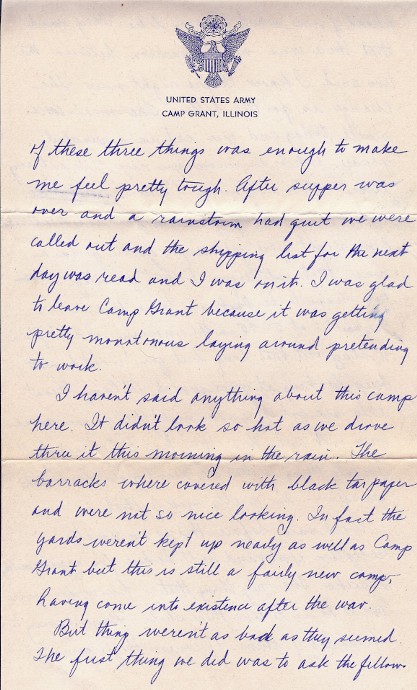 UNITED STATES ARMY
CAMP GRANT, ILLINOIS
of these three things was enough to make
me feel pretty tough. After supper was
over and a rainstorm had quit we were
called out and the shipping list for the next
day was read and I was on it. I was glad
to leave Camp Grant because it was getting
pretty monotonous laying around pretending
to work.
I haven't said anything about this camp
here. It didn't look so hot as we drove
thru it this morning in the rain. The
barracks where covered with black tar paper
and were not so nice looking. In fact the
yards weren't kept up nearly as well as Camp
Grant but this is still a fairly new camp,
having come into existence after the war.
But thing weren't as bad as they seemed.
The first thing we did was to ask the fellow